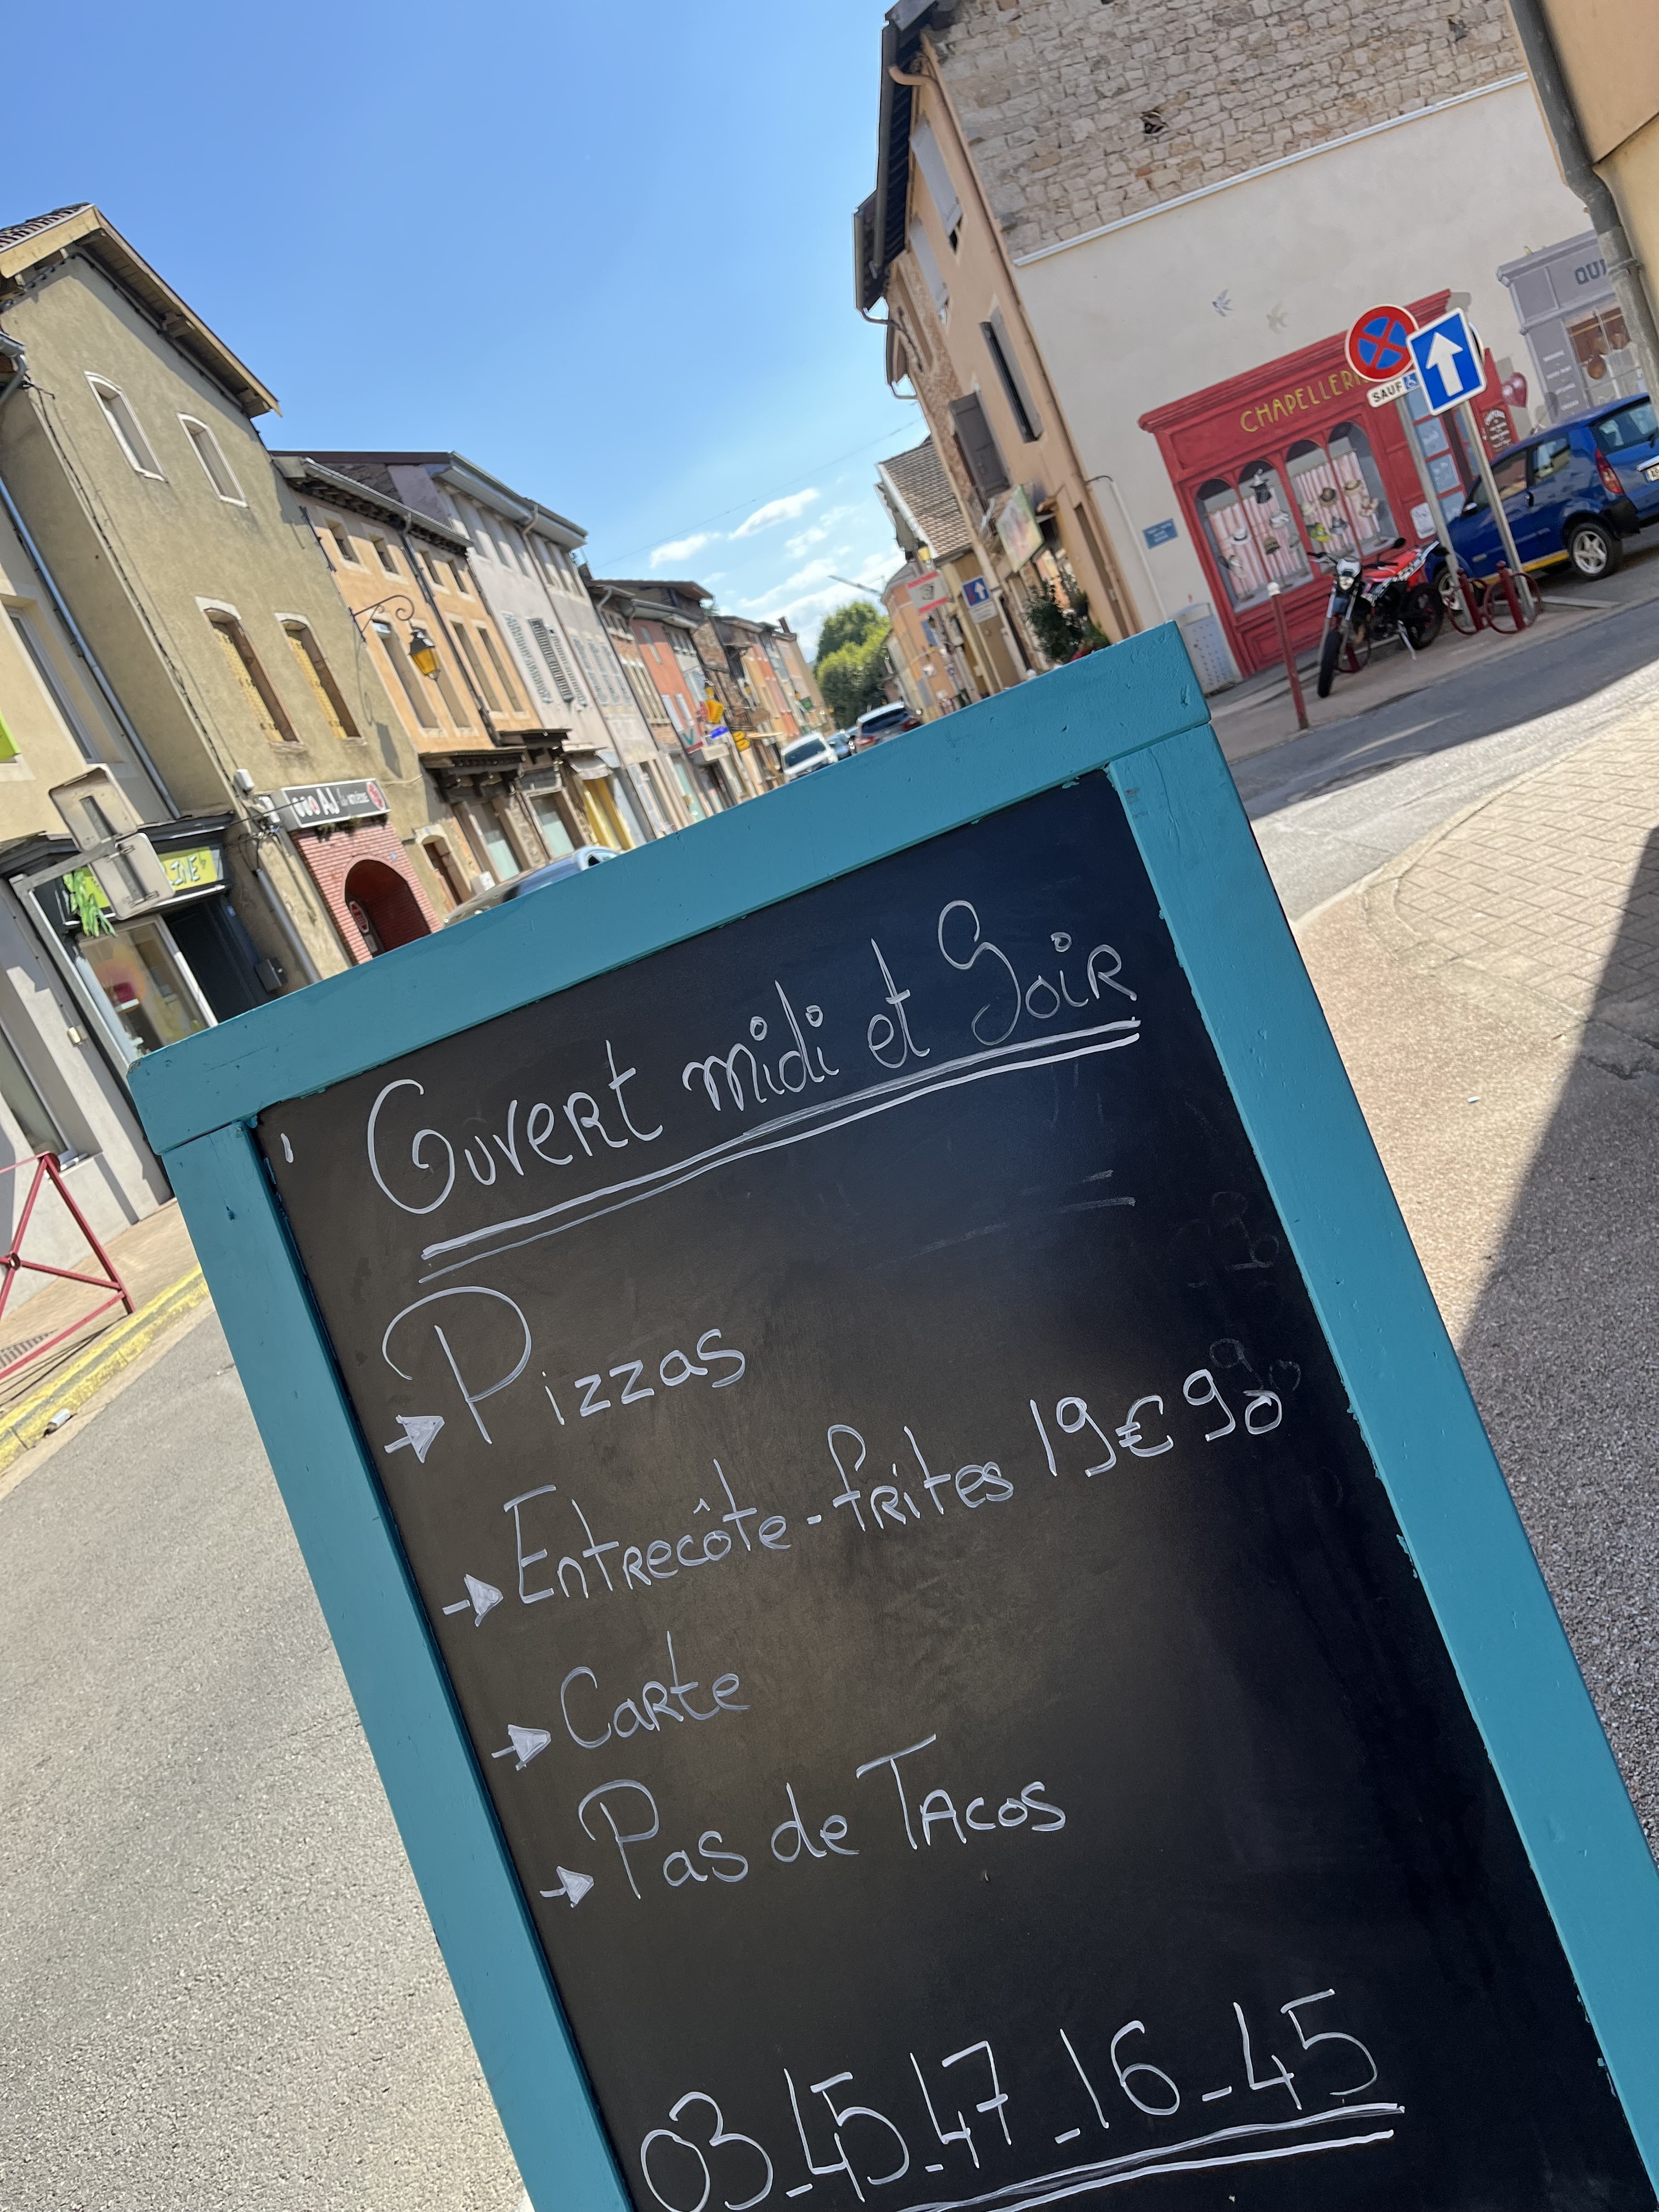 CHAPELLERIE
SAUF
Ouvert midi et Soir
Pizzas
Entrecôte-frites 19€90
Carte
Pas de Tacos
03-45-47-16-45